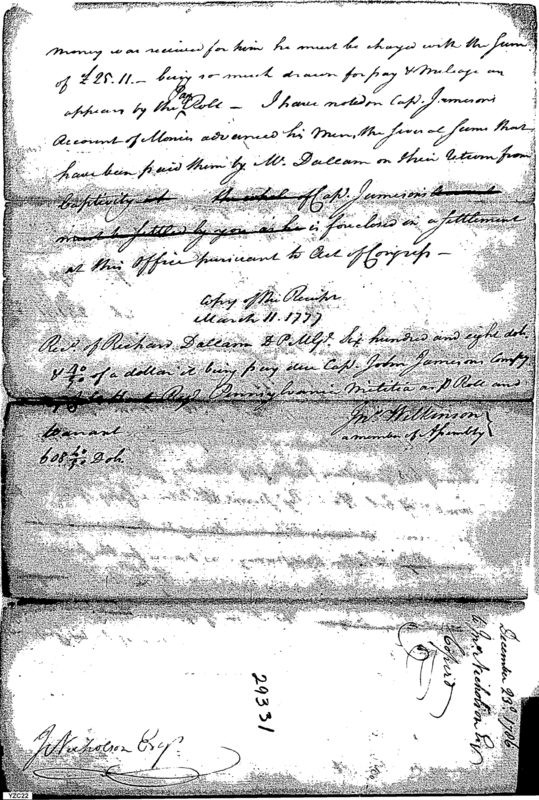 money was received for him he must be charged with the Sum
of £25.11.— being so much drawn for pay & mileage as
appears by the Pay Roll — I have noted on Cap. Jameson's
Account of Monies advanced his Men, the several Sums that
have been paid them by Mr. Dallam on their return from
Captivity of Cap. Jameson's
must be settled by you as he is foreclosed in a settlement
at this Office pursuant to Act of Congress —
Copy of the Receipt
March 11. 1777
Rec'd. of Richard Dallam D P. M. Gl. Six hundred and eight dols.
& 40/90 of a dollar it being pay due Cap. John Jamesons Compy
Regt. Pennsylvania Militia as P Roll and
Warrant
Jno. Wilkinson
a member of Assembly
608 40/90 Dols.
December 23d. 1786
to Jno. Nicholson Esqr
Copied
29331
J Nicholson Esqr.
YZC22